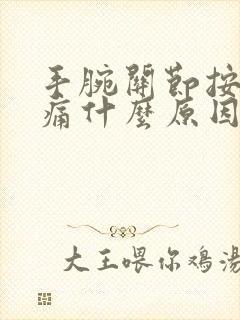 手腕關節按
痛什麼原因
大王喂你鸡湯